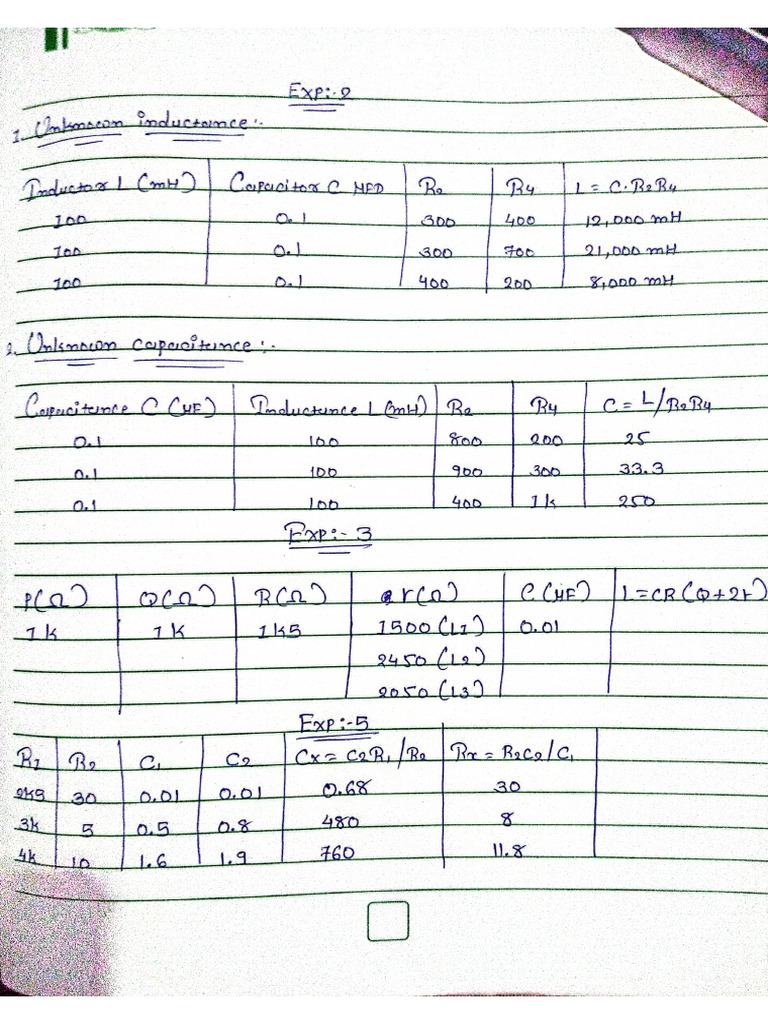 Exp:-2
1. Unknown inductance:-
Inductor L (mH) Capacitor C MFD R2 R4 L = C.R2R4
100 0.1 300 400 12,000 mH
100 0.1 300 700 21,000 mH
100 0.1 400 200 8,000 mH
2. Unknown capacitance:-
Capacitance C (μF) Inductance L (mH) R2 R4 C = L/R2R4
0.1 100 800 200 25
0.1 100 900 300 33.3
0.1 100 400 1k 250
Exp:-3
P(Ω) Q(Ω) R(Ω) r(Ω) C(μF) L=CR(Q+2r)
1k 1k 1k5 1500 (L1) 0.01
2450 (L2)
2050 (L3)
Exp:-5
R1 R2 C1 C2 Cx = C2R1/R2 Rx = R2C2/C1
2k5 30 0.01 0.01 0.68 30
3k 5 0.5 0.8 480 8
4k 10 1.6 1.9 760 11.8